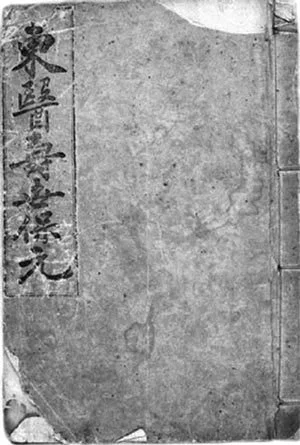 東醫壽世保元